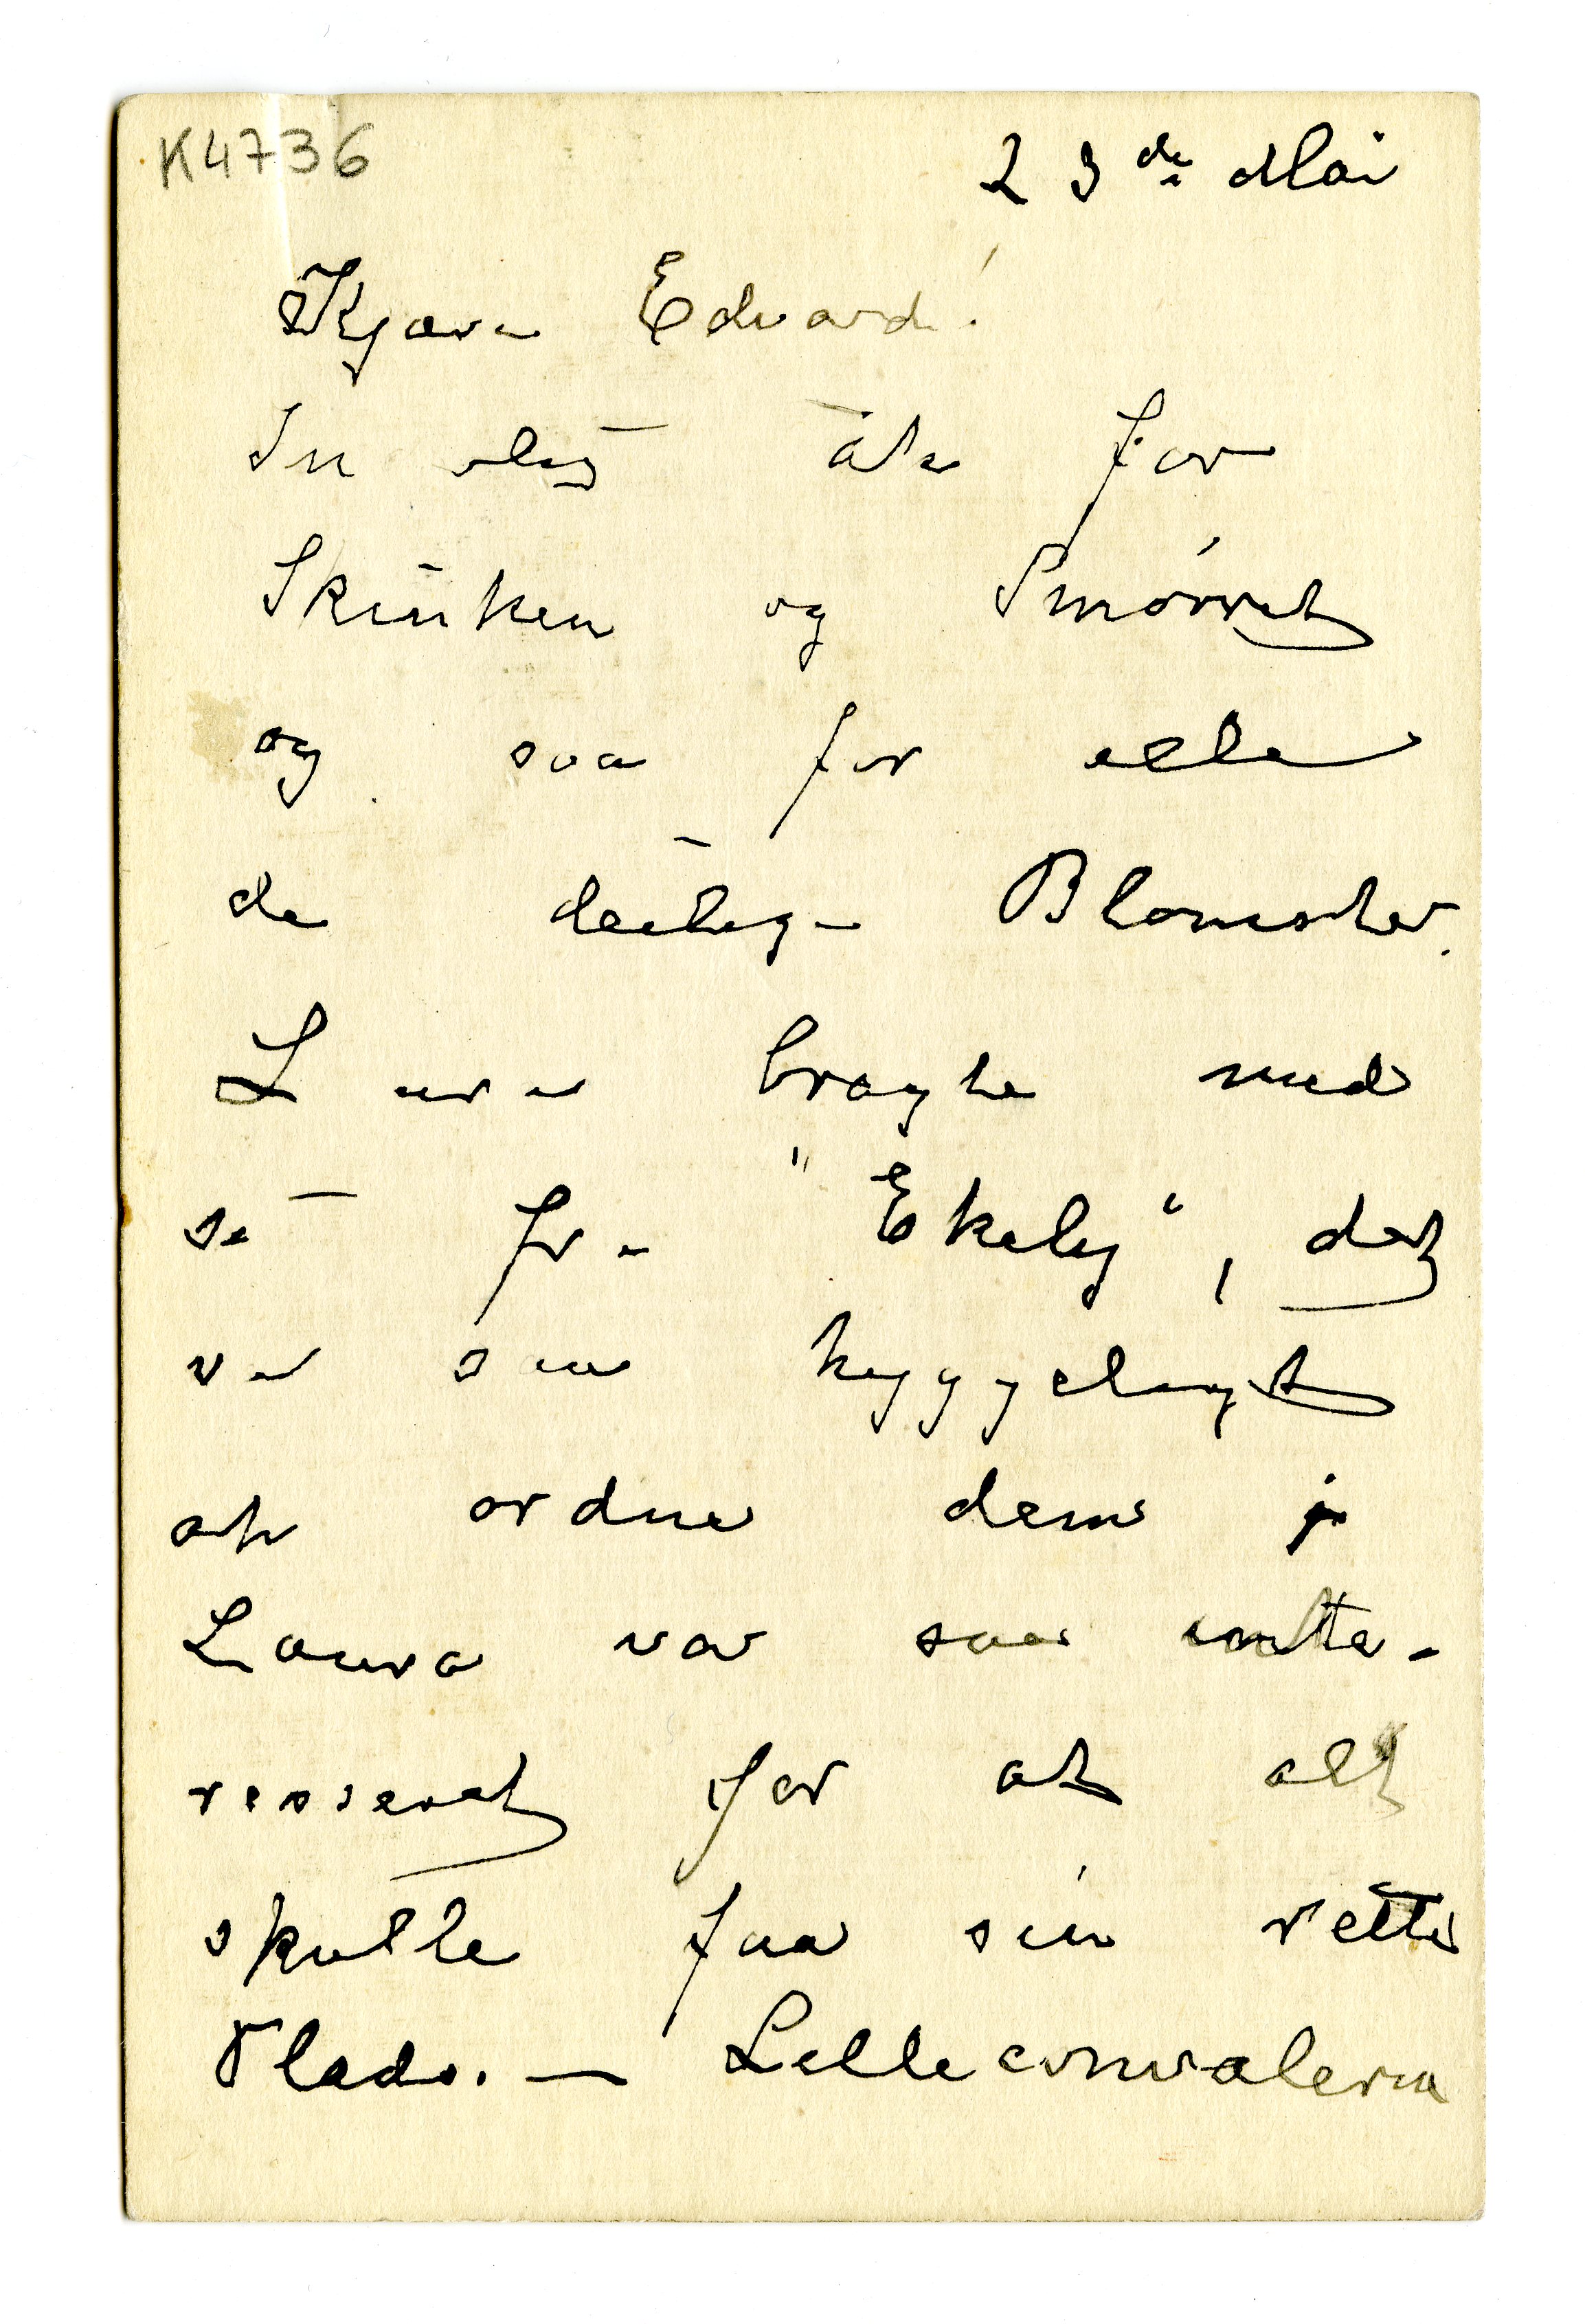 K4736
23de Mai
Kjære Edvard!
for
Skinken og Smörret
og saa for alle
de deilige Blomster.
Laura bragte med
sig fra "Ekely", det
var saa hyggeligt
at ordne dem
Laura var saa inte-
resseret for at alt
skulde faa sin rette
Plads. — Lilleconvalerne